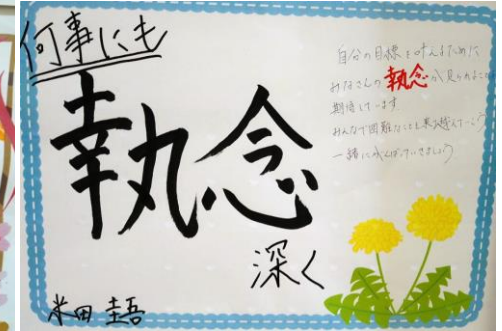 何事にも
執念
深く
自分の目標を叶えるために
みなさんの執念が見られることを
期待しています
みんなで困難なことも乗り越えていこう
一緒にがんばっていきましょう
米田圭吾